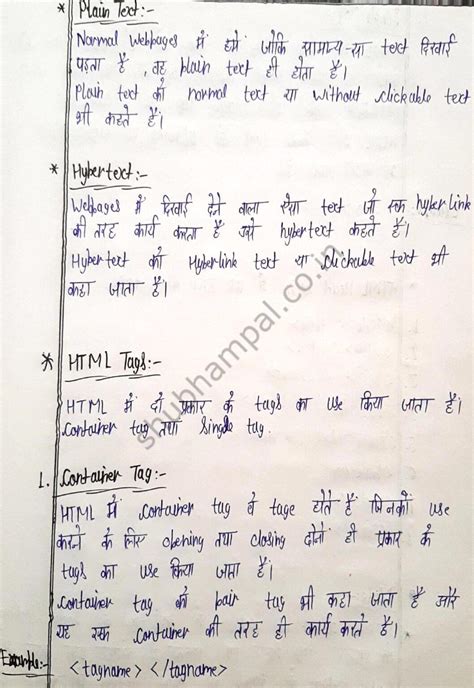 * Plain Text:-
Normal Webpages में हमें जोकि सामान्य-सा text दिखाई
पड़ता है, वह plain text ही होता है।
Plain text को normal text या without clickable text
भी कहते हैं।
* Hybertext:-
Webpages में दिखाई देने वाला ऐसा text जो एक hyber link
की तरह कार्य करता है उसे hybertext कहते हैं।
Hybertext को Hyberlink text या clickable text भी
कहा जाता है।
* HTML Tags:-
HTML में दो प्रकार के tags का use किया जाता है।
Container tag तथा single tag.
1. Container Tag:-
HTML में container tag वे tage होते हैं जिनको use
करने के लिए opening तथा closing दोनों ही प्रकार के
tags का use किया जाता है।
Container tag को pair tag भी कहा जाता है और
यह एक container की तरह ही कार्य करते है।
Example:- <tagname> </tagname>
shubhampal.co.in